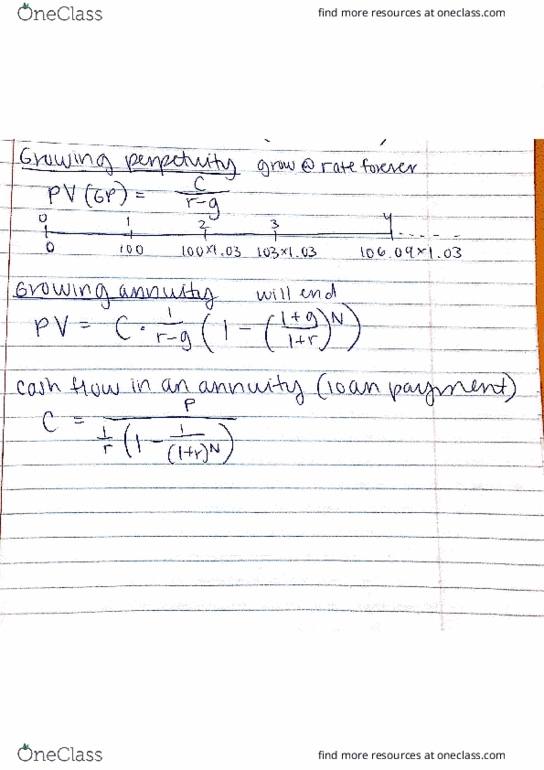 OneClass
find more resources at oneclass.com
Growing perpetuity grow @ rate forever
PV (GP) = C / r-g
0 1 2 3 4
0 100 100×1.03 103×1.03 106.09×1.03
Growing annuity will end
PV = C · 1/r-g (1 - (1+g/1+r)^N)
cash flow in an annuity (loan payment)
C = P / 1/r (1 - 1/(1+r)^N)
OneClass
find more resources at oneclass.com